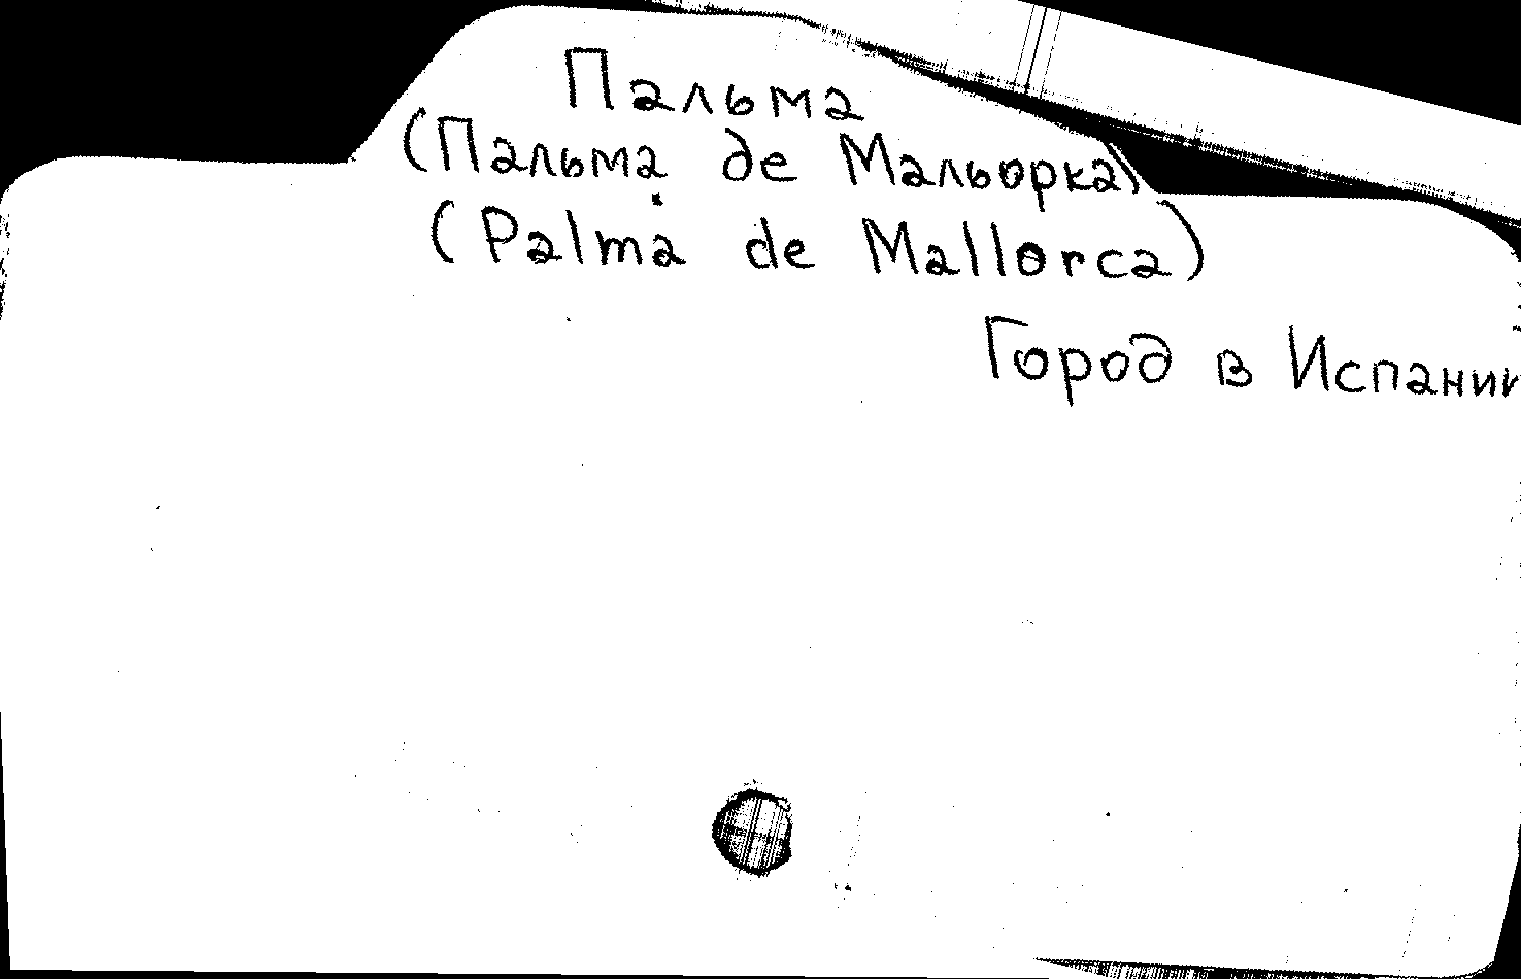 Пальма
(Пальма де Мальорка)
(Palma de Mallorca)
Город в Испании